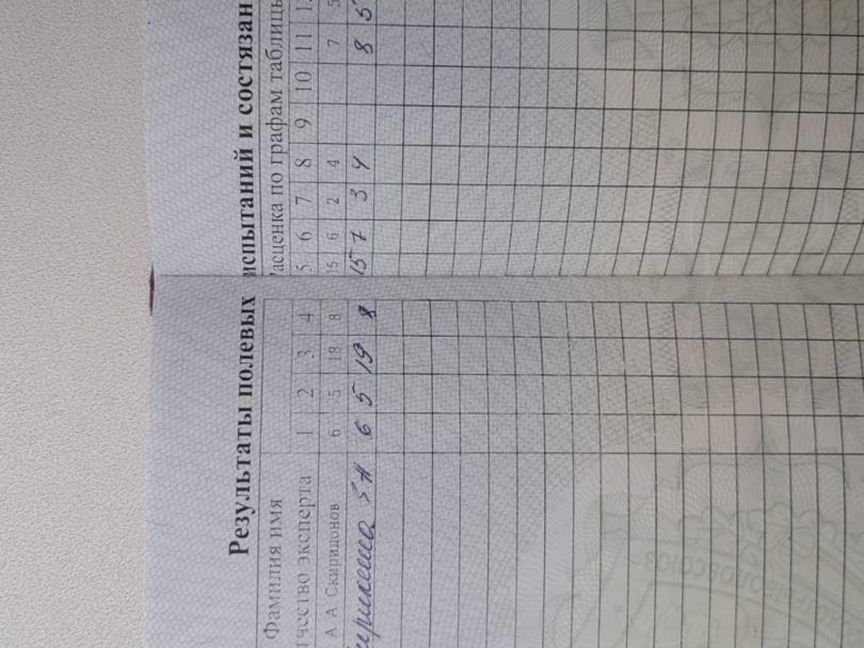 Результаты полевых испытаний и состязан
Фамилия имя
асценка по графам таблицы
чество эксперта 1 2 3 4 5 6 7 8 9 10 11
А А Скиридонов 6 5 18 8 15 6 2 4 7 5
6 5 19 8 15 7 3 4 8 5